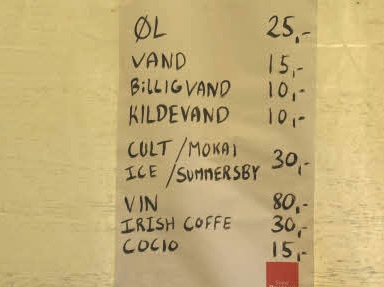 ØL 25,-
VAND 15,-
BiLLIGVAND 10,-
KILDEVAND 10,-
CULT / MOKAI
ICE / SUMMERSBY 30,-
VIN 80,-
IRISH COFFE 30,-
COCIO 15,-